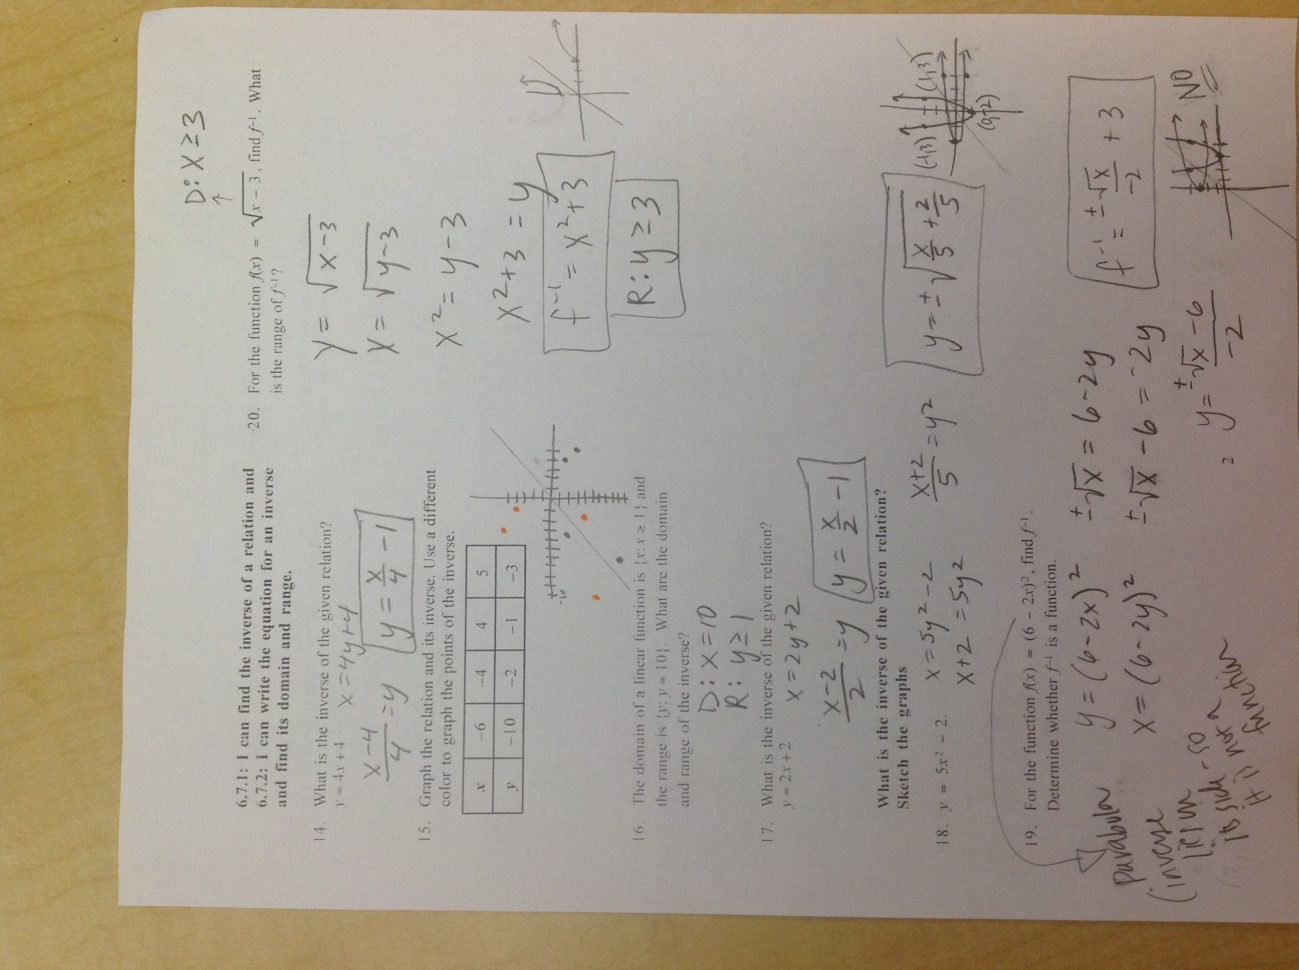 6.7.1: I can find the inverse of a relation and
6.7.2: I can write the equation for an inverse
and find its domain and range.
14. What is the inverse of the given relation?
y = 4x + 4
x = 4y + 4
x-4/4 = y
y = x/4 - 1
15. Graph the relation and its inverse. Use a different
color to graph the points of the inverse.
x -6 -4 4 5
y -10 -2 -1 -3
16. The domain of a linear function is {x: x ≥ 1} and
the range is {y: y = 10}. What are the domain
and range of the inverse?
D: x = 10
R: y ≥ 1
17. What is the inverse of the given relation?
y = 2x + 2
x = 2y + 2
x-2/2 = y
y = x/2 - 1
What is the inverse of the given relation?
Sketch the graphs
18. y = 5x² - 2.
x = 5y² - 2
x + 2 = 5y²
x+2/5 = y²
y = ±√x/5 + 2/5
(-1,3) (1,3)
(0,-2)
19. For the function f(x) = (6 - 2x)², find f⁻¹.
Determine whether f⁻¹ is a function.
y = (6 - 2x)²
x = (6 - 2y)²
±√x = 6 - 2y
±√x - 6 = -2y
y = ±√x - 6/-2
f⁻¹ = ±√x/-2 + 3
NO
parabola
(inverse
lies on
its side - so
it is not a
function
2
D: x ≥ 3
20. For the function f(x) = √x - 3, find f⁻¹. What
is the range of f⁻¹?
y = √x-3
x = √y-3
x² = y - 3
x² + 3 = y
f⁻¹ = x² + 3
R: y ≥ 3